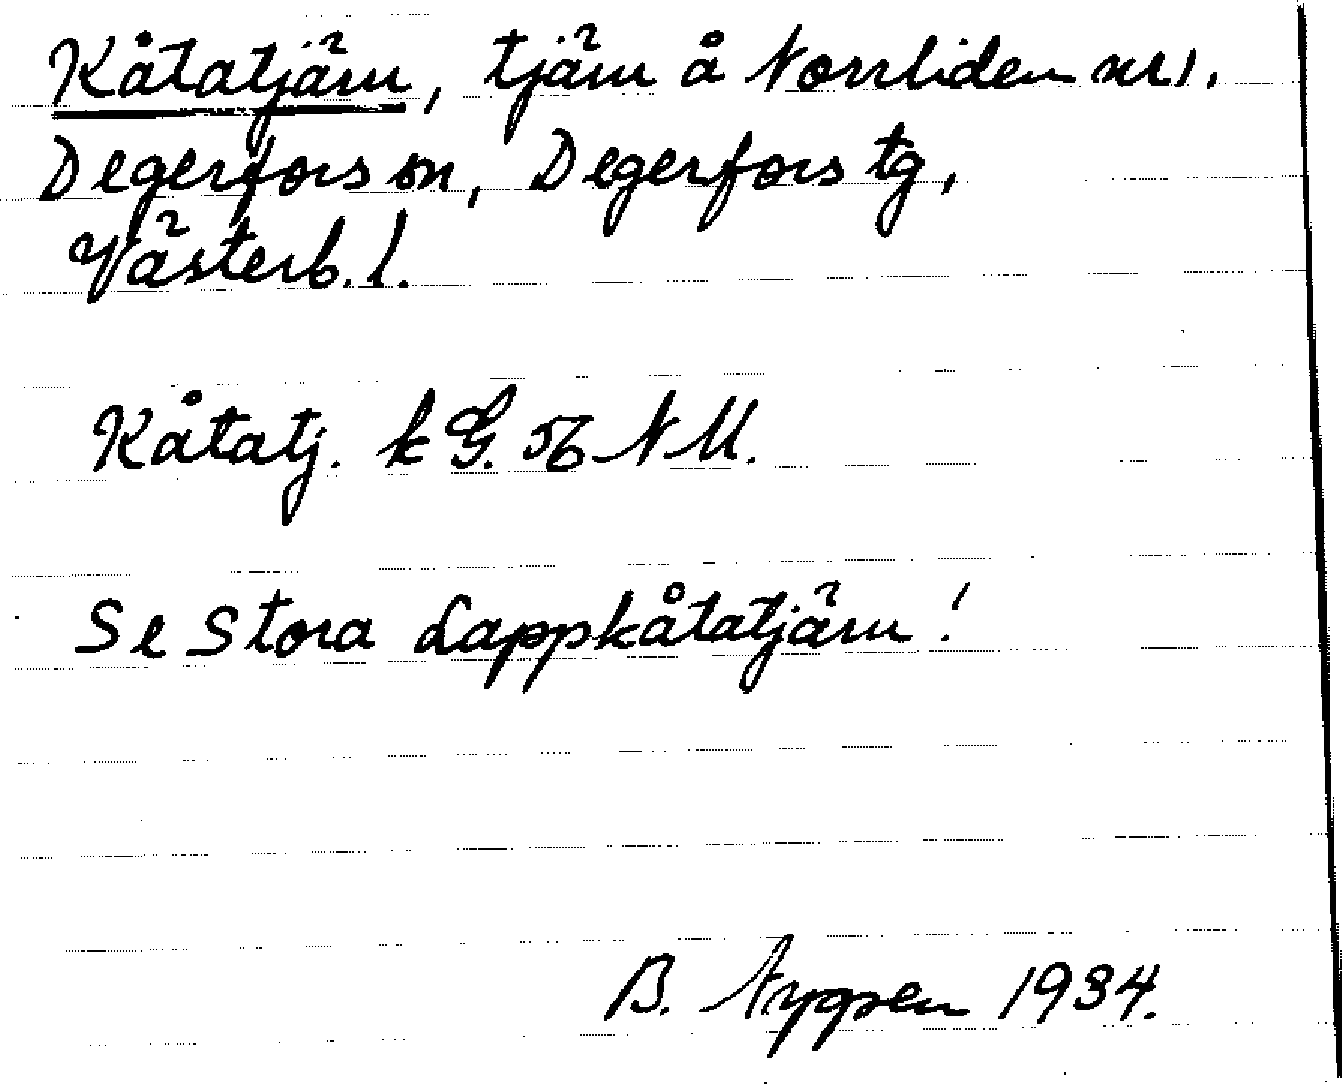 Kåtatjärn, tjärn å Norrliden nr 1,
Degerfors sn, Degerfors tg,
Västerb. l.
Kåtatj. k G. 56 N M.
Se Stora Lappkåtatjärn!
B. Nygren 1934.